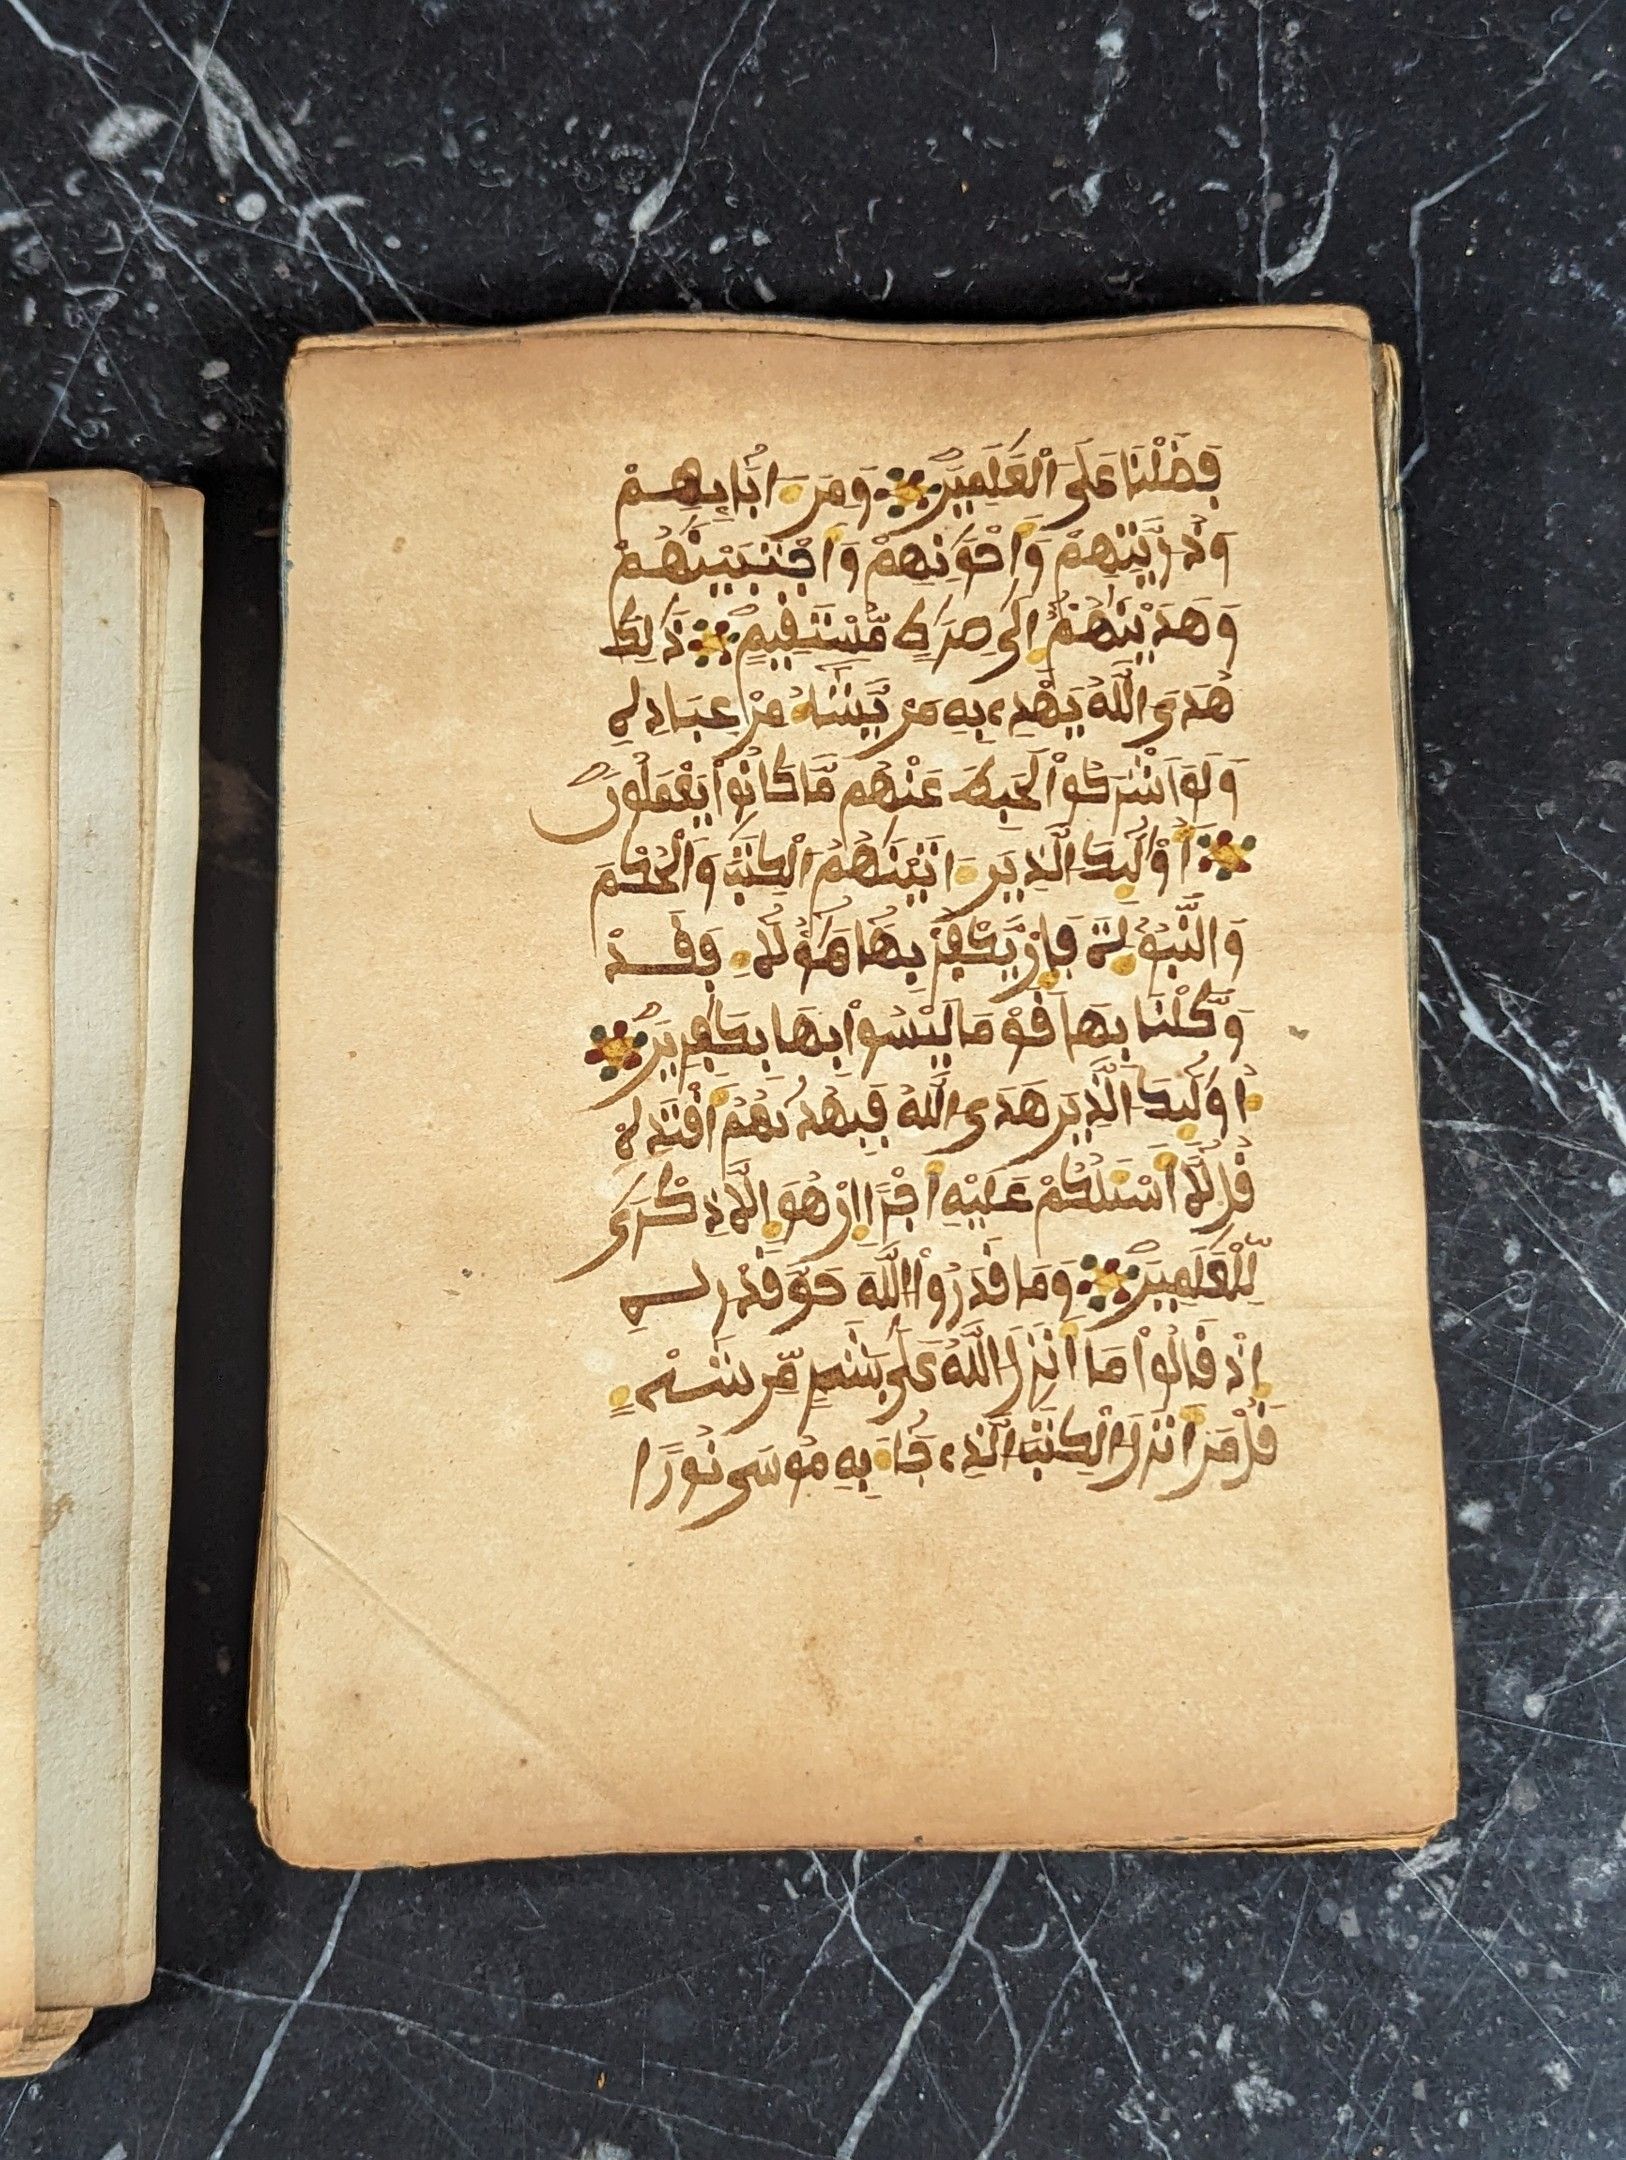 فَضَّلْنَا عَلَى الْعَٰلَمِينَ وَمِنَ ـابَآيِهِمْ
وَذُرِّيَّٰتِهِمْ وَإِخْوَٰنِهِمْ وَاجْتَبَيْنَٰهُمْ
وَهَدَيْنَٰهُمُۥٓ إِلَىٰ صِرَٰطٍ مُّسْتَقِيمٍ ذَٰلِكَ
هُدَى اللَّهِ يَهْدِے بِهِ مَنْ يَّشَآءُ مِنْ عِبَادِهِ
وَلَوَ اَشْرَكُواْ لَحَبِطَ عَنْهُم مَّا كَانُواْ يَعْمَلُونَ
أُوْلَٰٓئِكَ الَّذِينَ ءَاتَيْنَٰهُمُ الْكِتَٰبَ وَالْحُكْمَ
وَالنُّبُوٓءَةَ فَإِنْ يَّكْفُرْ بِهَا هَٰٓؤُلَآءِ فَقَدْ
وَكَّلْنَا بِهَا قَوْمًا لَّيْسُواْ بِهَا بِكَٰفِرِينَ
أُوْلَٰٓئِكَ الَّذِينَ هَدَى اللَّهُ فَبِهُدَىٰهُمُ اقْتَدِهْ
قُل لَّآ أَسْـَٔلُكُمْ عَلَيْهِ أَجْرًا إِنْ هُوَ إِلَّا ذِكْرَىٰ
لِلْعَٰلَمِينَ وَمَا قَدَرُواْ اللَّهَ حَقَّ قَدْرِهِ
إِذْ قَالُواْ مَآ أَنزَلَ اللَّهُ عَلَىٰ بَشَرٍ مِّن شَےْءٍ
قُلْ مَنَ اَنزَلَ الْكِتَٰبَ الَّذِے جَآءَ بِهِ مُوسَىٰ نُورًا